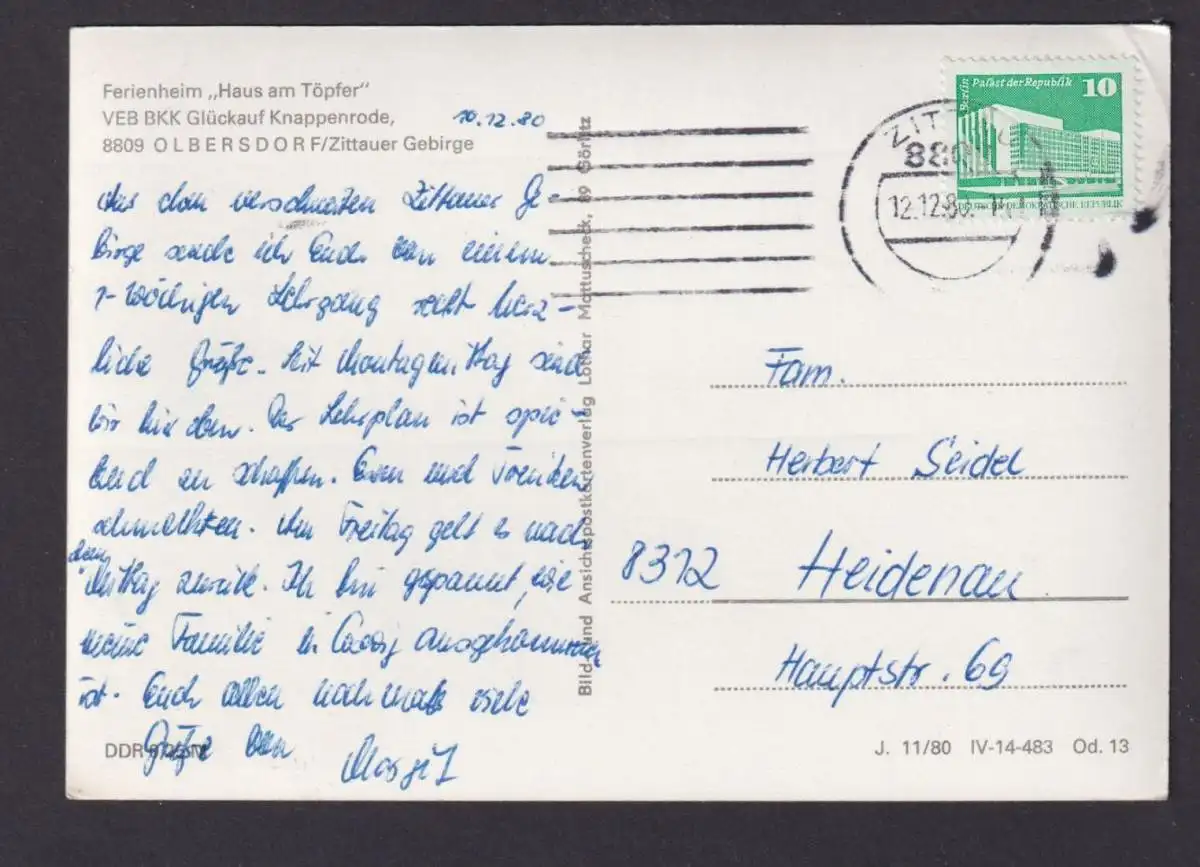 Ferienheim „Haus am Töpfer"
VEB BKK Glückauf Knappenrode,
8809 OLBERSDORF/Zittauer Gebirge
10.12.80
Aus dem verschneiten Zittauer Ge
birge sende ich Euch von einem
1-wöchigen Lehrgang recht herz-
liche Grüße. Seit Montagmittag sind
wir hier oben. Der Lehrplan ist
zu schaffen. Essen und Trinken
Am Freitag geht es nach
dem
Mittag zurück. Ich bin gespannt, wie
meine Familie in ausgekommen
ist. Euch allen nochmals viele
Grüße von
Margit
DDR
Bild- und Ansichtspostkartenverlag Lothar Mattuscheck, 89 Görlitz
Berlin Palast der Republik 10
DEUTSCHE DEMOKRATISCHE REPUBLIK
ZITTAU
880
12.12.80
Fam.
Herbert Seidel
8312 Heidenau
Hauptstr. 69
J. 11/80 IV-14-483 Od. 13